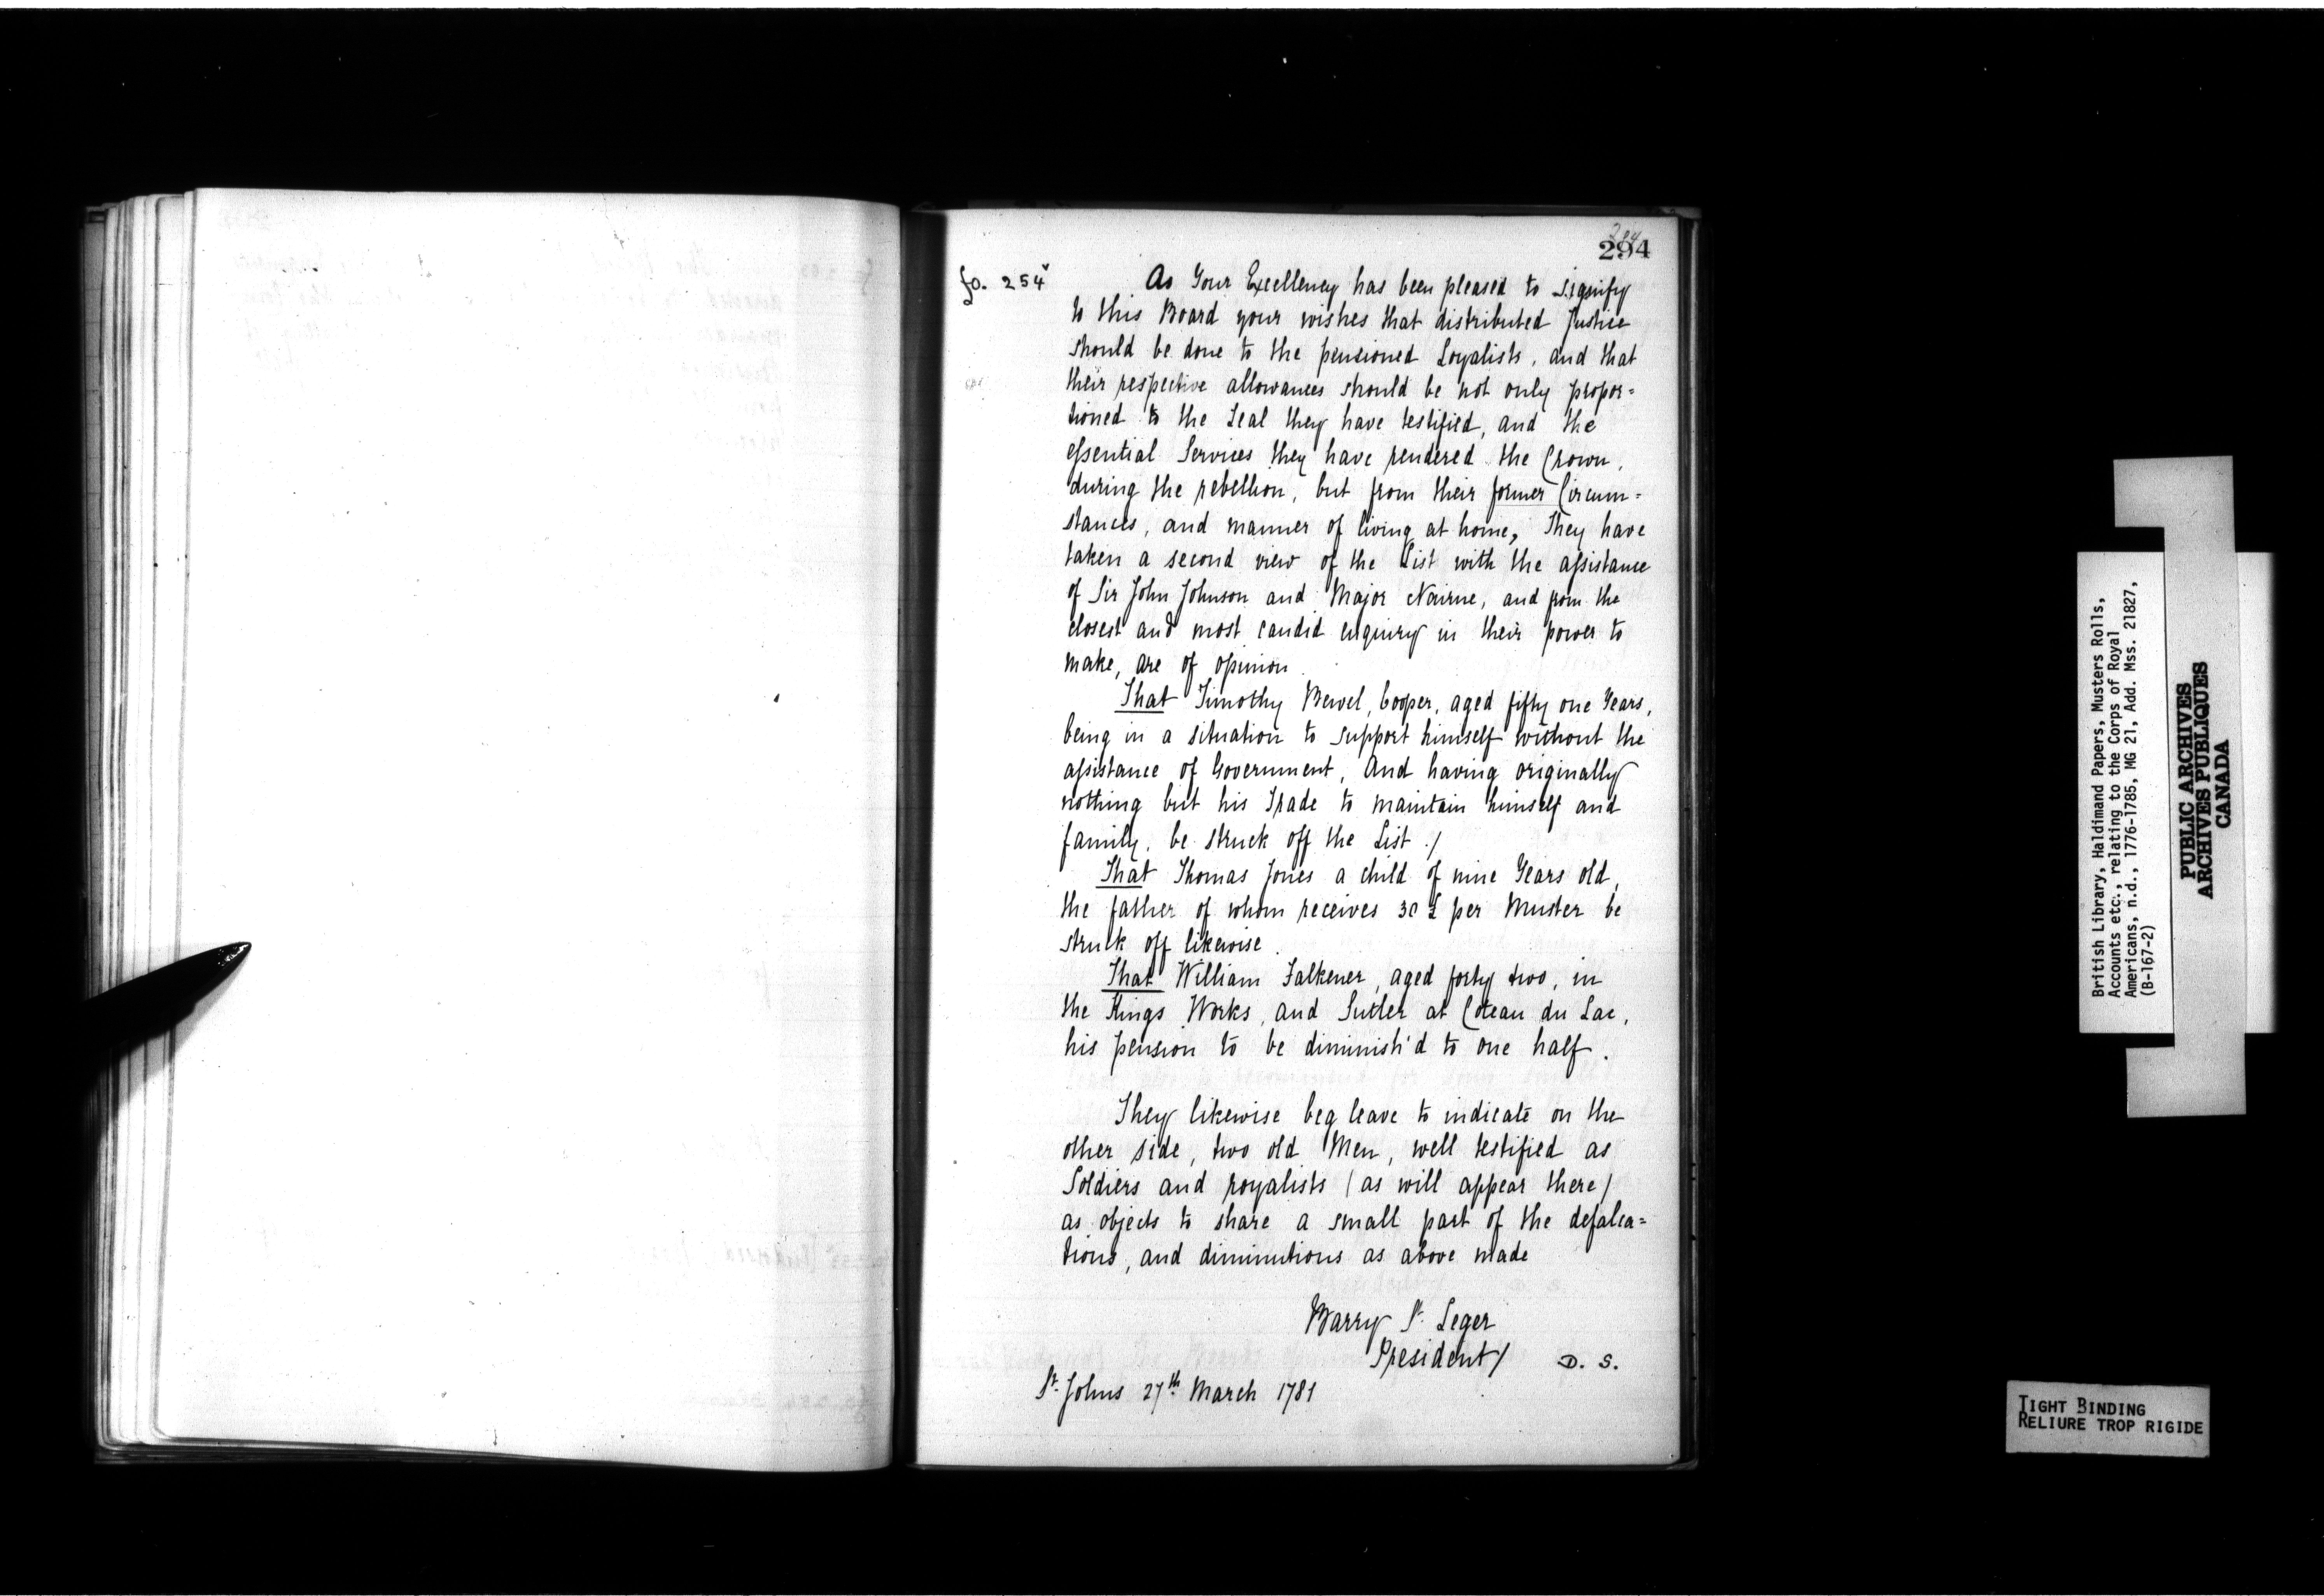 294
fo. 254v
As Your Excellency has been pleased to signify
to this Board your wishes that distributed Justice
should be done to the pensioned Loyalists, and that
their respective allowances should be not only propor=
tioned to the Zeal they have testified, and the
essential Services they have rendered the Crown,
during the rebellion, but from their former Circum=
stances, and manner of living at home, They have
taken a second view of the List with the assistance
of Sir John Johnson and Major Nairne, and from the
closest and most candid enquiry in their power to
make, are of opinion
That Timothy Bewel, Cooper, aged fifty one Years,
being in a situation to support himself without the
assistance of Government, And having originally
nothing but his Trade to maintain himself and
family, be struck off the List ./
That Thomas Jones a child of nine Years old,
the father of whom receives 30 £ per Muster be
struck off likewise.
That William Falkener, aged forty two, in
the Kings Works, and Sutler at Coteau du Lac,
his pension to be diminish'd to one half.
They likewise beg leave to indicate on the
other side, two old Men, well testified as
Soldiers and royalists (as will appear there)
as objects to share a small part of the defalca=
tions, and diminutions as above made
Barry St. Leger
President/ D. S.
St. Johns 27th March 1781
British Library, Haldimand Papers, Musters Rolls,
Accounts etc., relating to the Corps of Royal
Americans, n.d., 1776-1785, MG 21, Add. Mss. 21827,
(B-167-2)
PUBLIC ARCHIVES
ARCHIVES PUBLIQUES
CANADA
TIGHT BINDING
RELIURE TROP RIGIDE